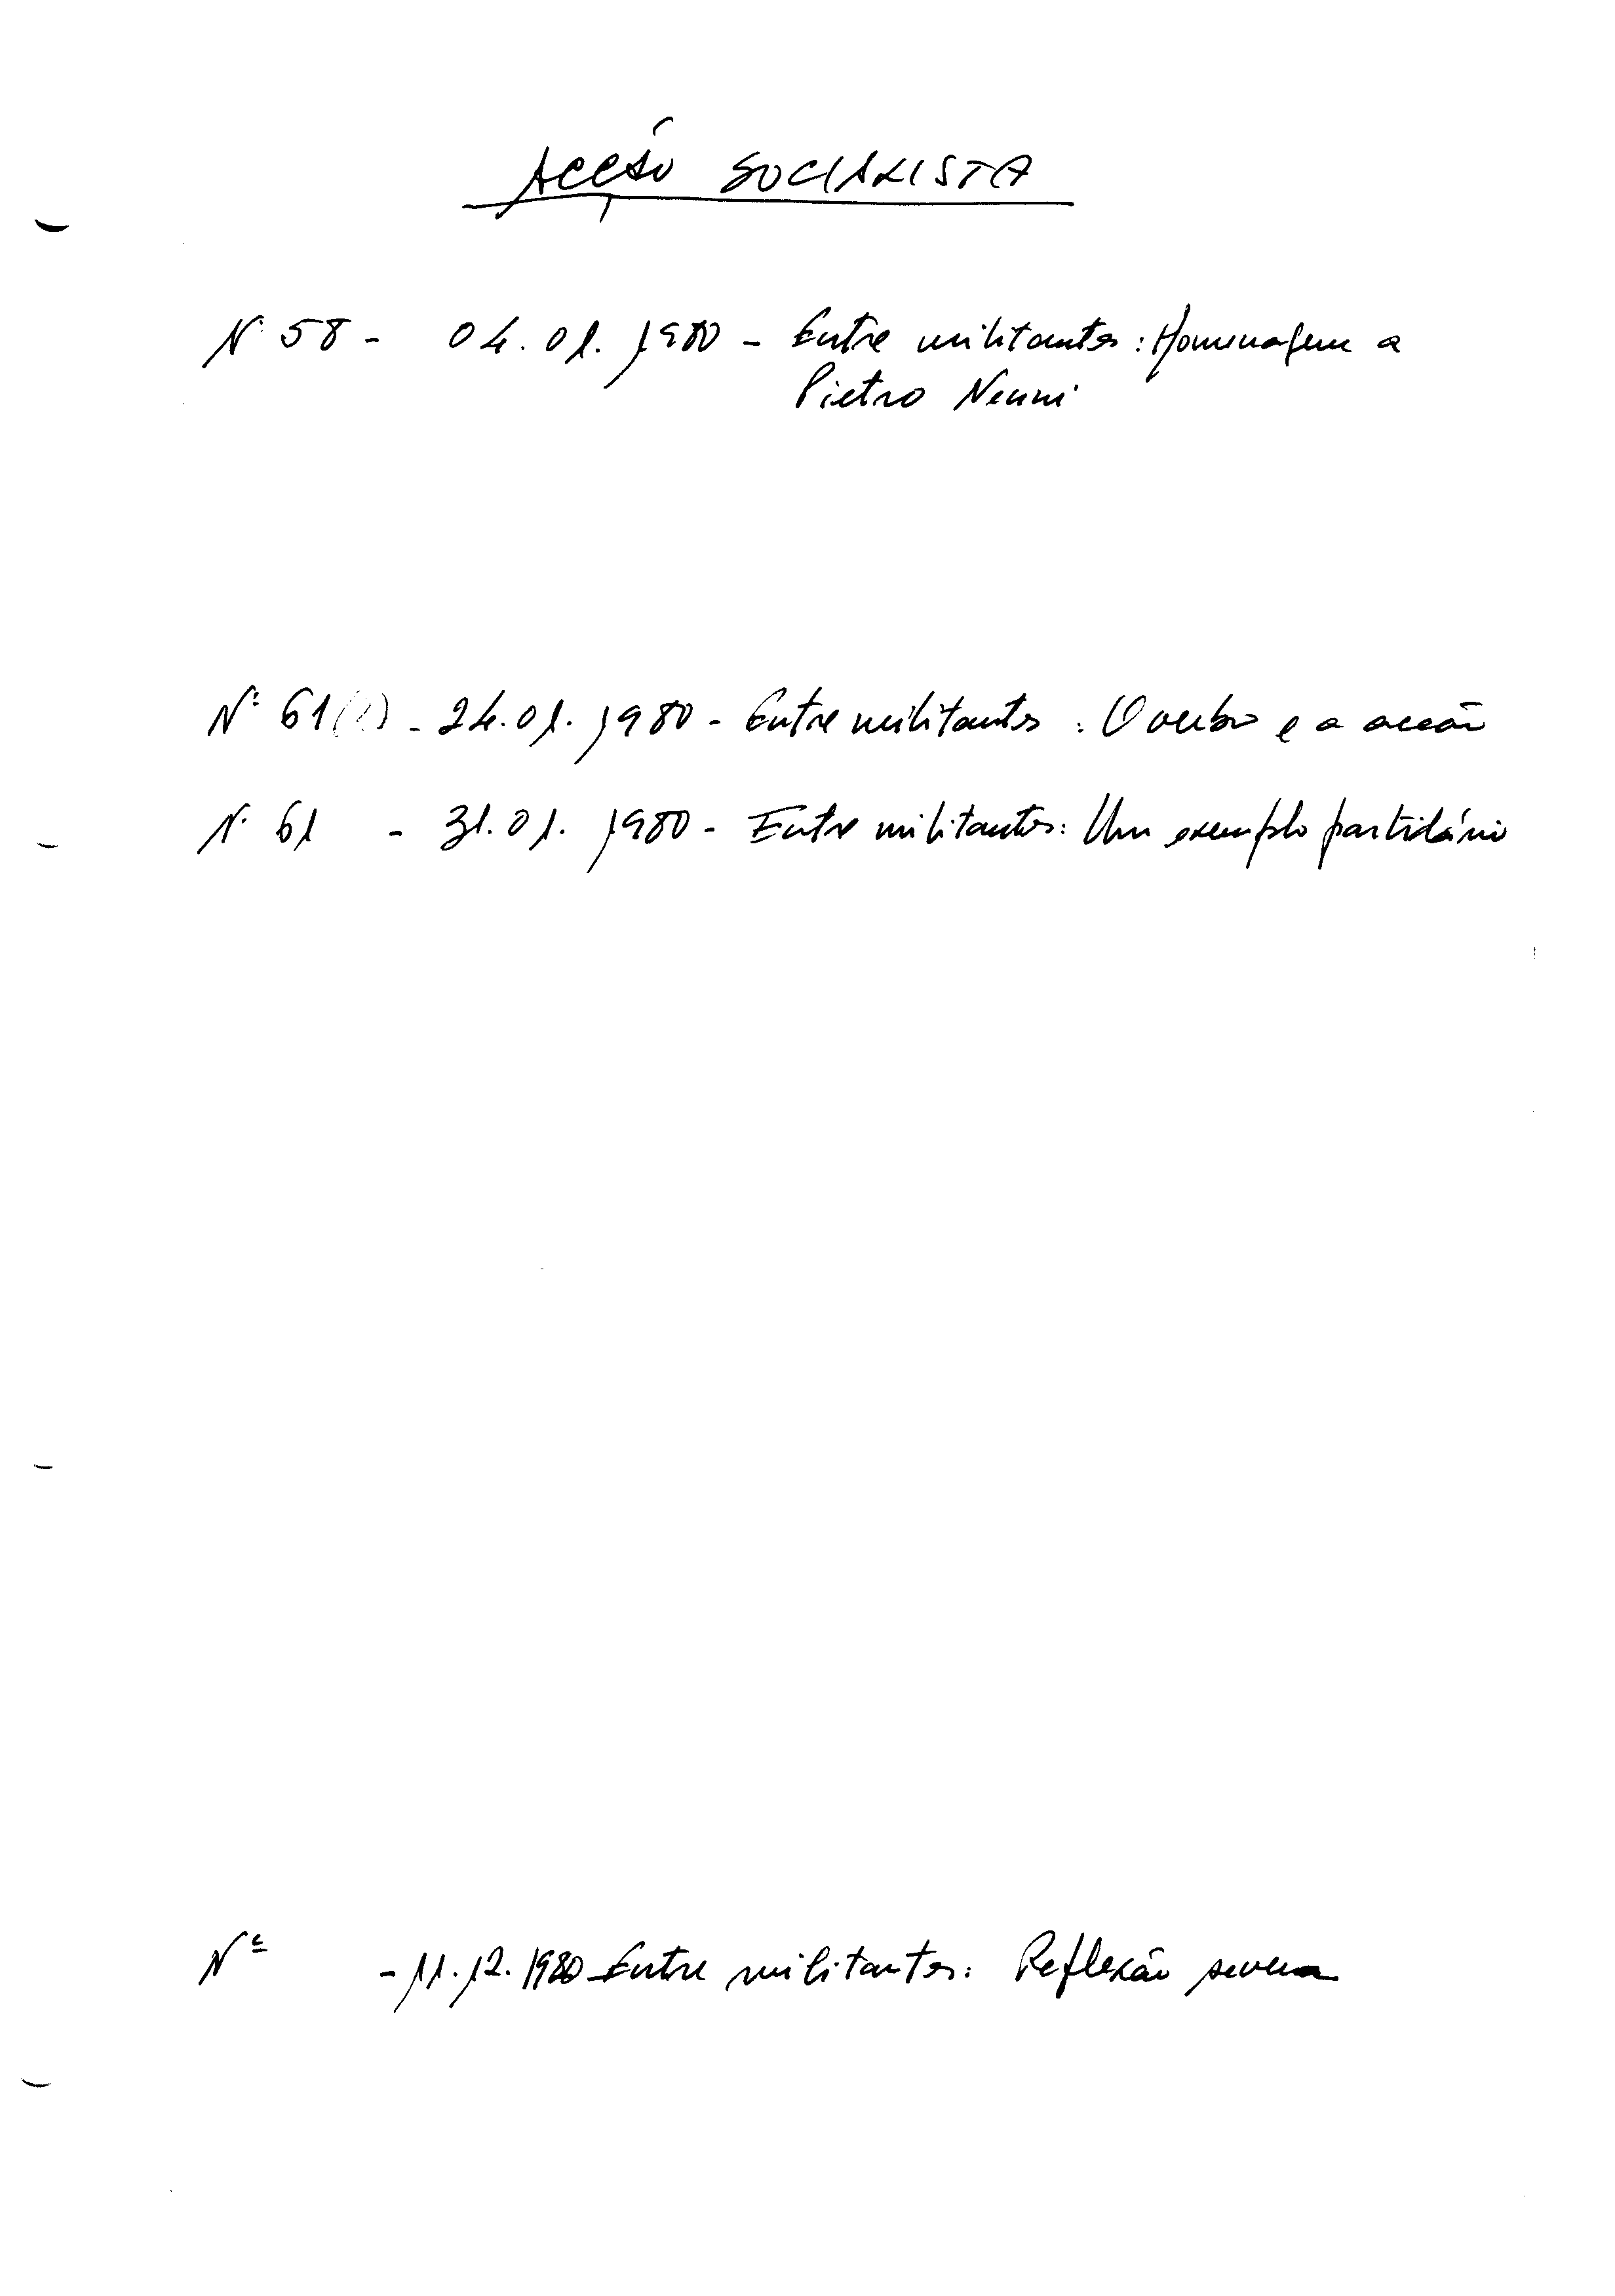 ACÇÃO SOCIALISTA
Nº 58 - 04.01.1980 - Entre militantes: Homenagem a
Pietro Nenni
Nº 61(?) - 24.01.1980 - Entre militantes: O verbo e a acção
Nº 61 - 31.01.1980 - Entre militantes: Um exemplo partidário
Nº - 11.12.1980 - Entre militantes: Reflexão severa